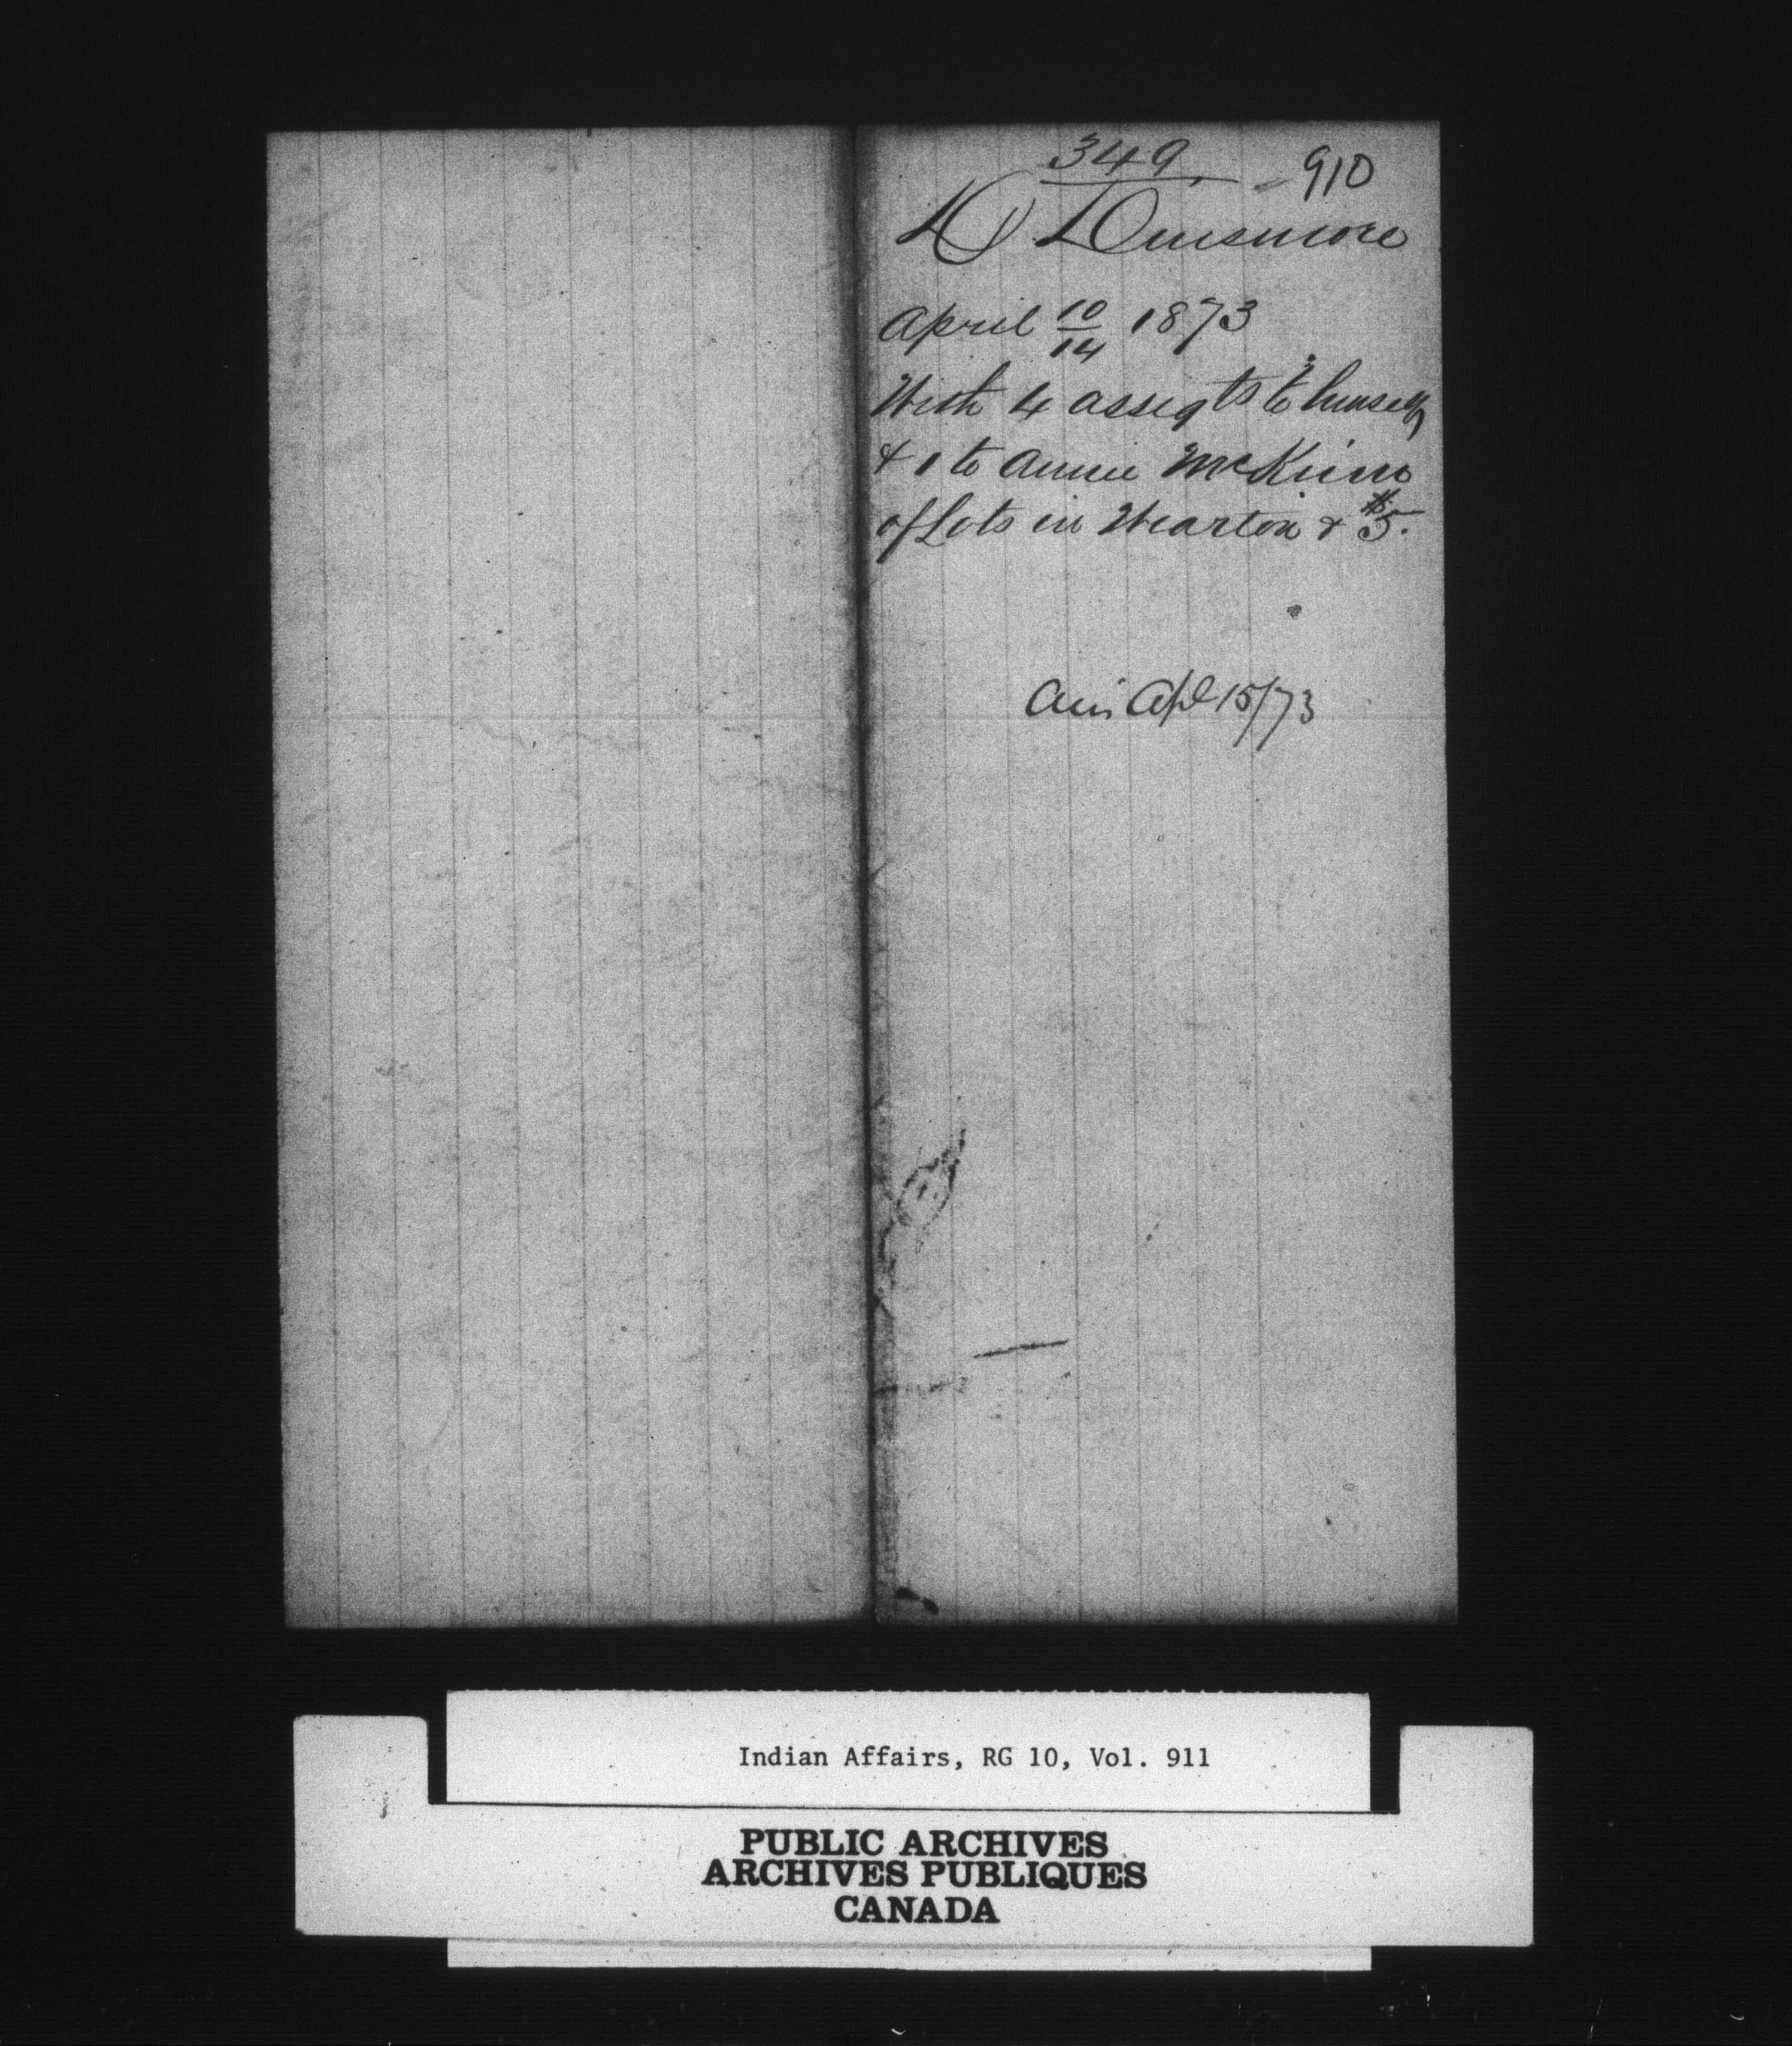 349. 910
D. Dinsmore
April 10/14 1873
With 4 assigts to himself
& 1 to Annie McKim
of Lots in Wiarton & $5.
Ans Apl 15/73
Indian Affairs, RG 10, Vol. 911
PUBLIC ARCHIVES
ARCHIVES PUBLIQUES
CANADA